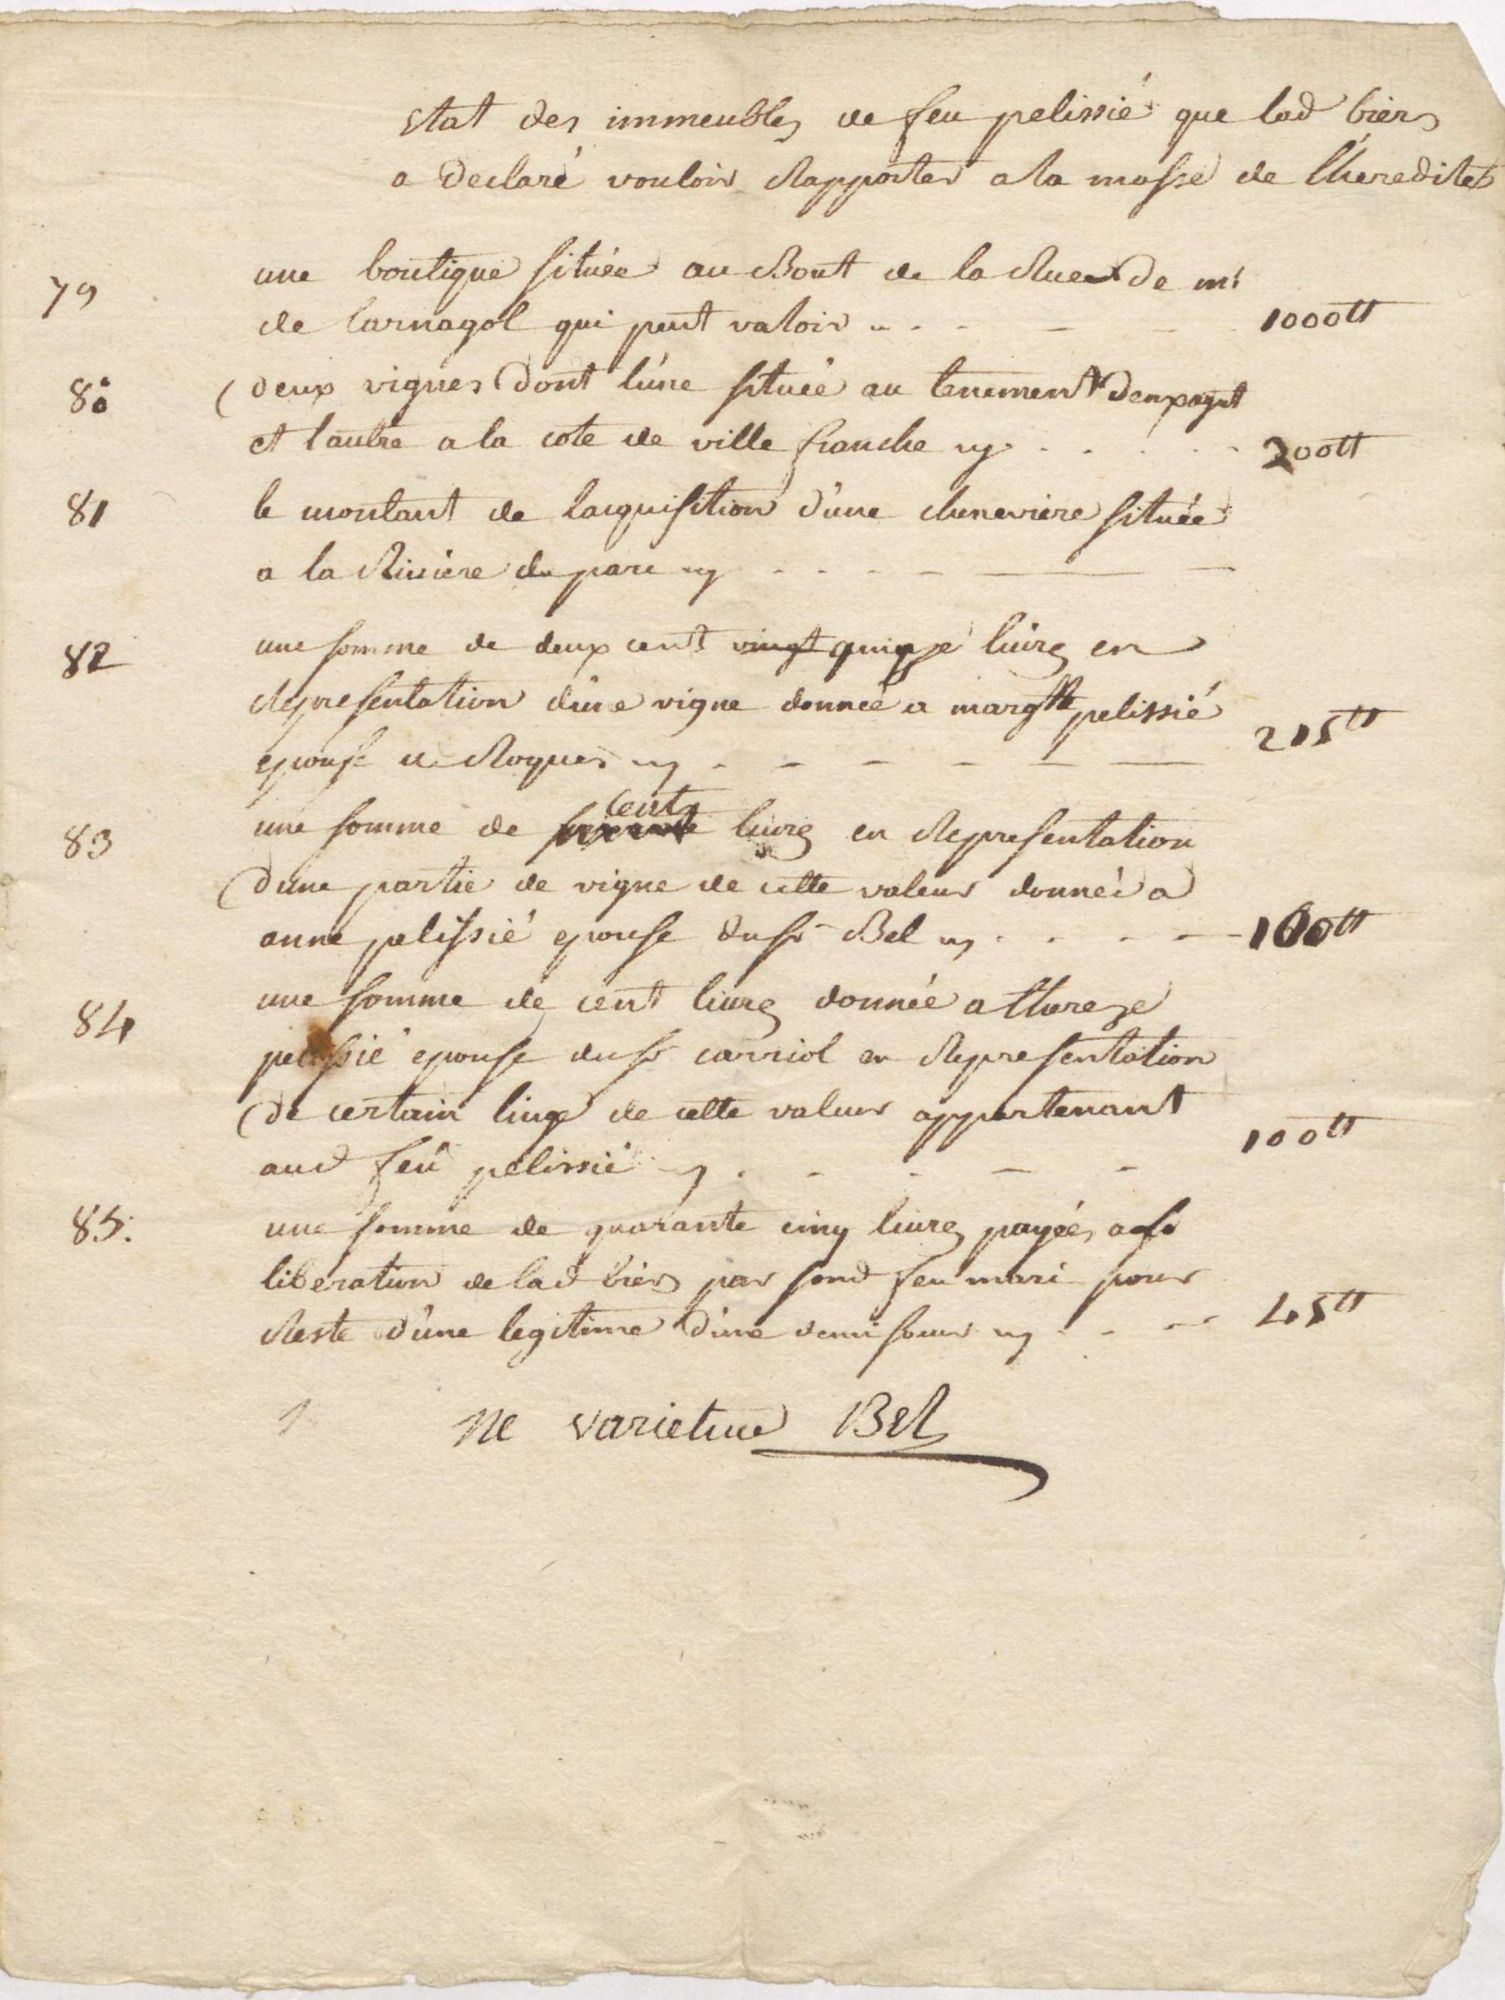 Etat des immeubles de feu pelissié que lad biers
a declaré vouloir Rapporter a la masse de lheredité
79 une boutique située au Bout de la Rue de mr
de larnagol qui peut valoir 1000tt
80 deux vignes dont lune située au tenement
et lautre a la cote de ville franche cy 200tt
81 le montant de lacquisition d'une cheneviere située
a la Riviere du parc cy
82 une somme de deux cent vingt quinze livres en
Representation d'une vigne donnée a margte pelissié
epouse de Roques cy 215tt
83 une somme de cents livres en Representation
d'une partie de vigne de cette valeur donnée a
anne pelissié epouse du sr Bel cy 100tt
84 une somme de cent livres donnée a thereze
pelissié epouse du sr carriol en Representation
de certain linge de cette valeur appartenant
aud feu pelissié cy 100tt
85. une somme de quarante cinq livres payées a la
liberation de lad biers par sond feu mari pour
Reste d'une legitime d'une demi soeur cy 45tt
Ne varietur Bel